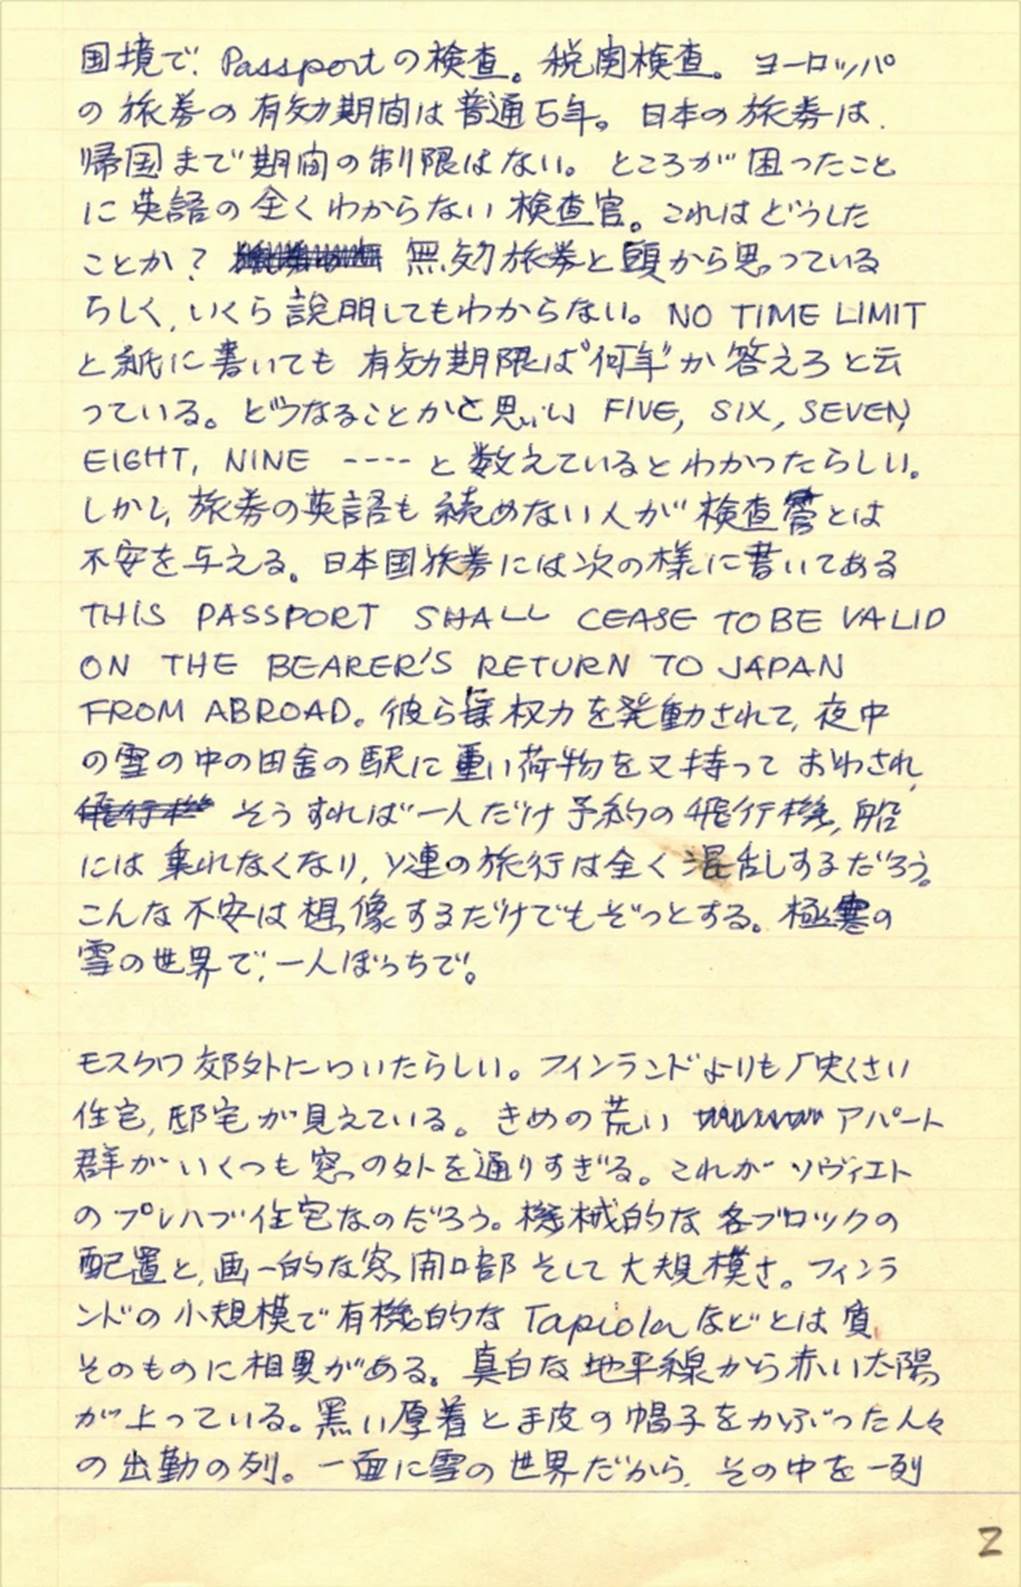 国境で、Passportの検査。税関検査。ヨーロッパ
の旅券の有効期間は普通5年。日本の旅券は、
帰国まで期間の制限はない。ところが困ったこと
に英語の全くわからない検査官。これはどうした
ことか? 無効旅券と頭から思っている
らしく、いくら説明してもわからない。NO TIME LIMIT
と紙に書いても有効期限は“何年”か答えろと云
っている。どうなることかと思い FIVE, SIX, SEVEN,
EIGHT, NINE ----と数えているとわかったらしい。
しかし、旅券の英語も読めない人が検査官とは
不安を与える。日本国旅券には次の様に書いてある
THIS PASSPORT SHALL CEASE TO BE VALID
ON THE BEARER'S RETURN TO JAPAN
FROM ABROAD。彼らに権力を発動されて、夜中
の雪の中の田舎の駅に重い荷物を又持っておわされ、
そうすれば一人だけ予約の飛行機、船
には乗れなくなり、ソ連の旅行は全く混乱しするだろう。
こんな不安は想像するだけでもぞっとする。極寒の
雪の世界で、一人ぼっちで。
モスクワ郊外についたらしい。フィンランドよりも古くさい
住宅、邸宅が見えている。きめの荒い アパート
群がいくつも窓の外を通りすぎる。これがソヴィエト
のプレハブ住宅なのだろう。機械的な各ブロックの
配置と、画一的な窓、開口部そして大規模さ。フィンラ
ンドの小規模で有機的なTapiolaなどとは質
そのものに相異がある。真白な地平線から赤い太陽
が上っている。黒い厚着と毛皮の帽子をかぶった人々
の出勤の列。一面に雪の世界だから、その中を一列
2